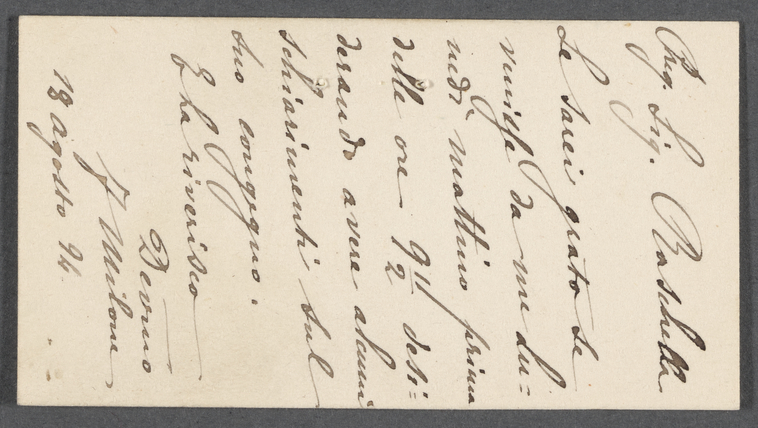 Preg. Sig. Raschella
Le sarei grato se
venisse da me lu=
nedì mattino prima
delle ore 9 1/2 desi=
derando avere alcuni
schiarimenti sul
suo congegno.
E La riverisco
Devmo
F Milone
18 agosto 94.